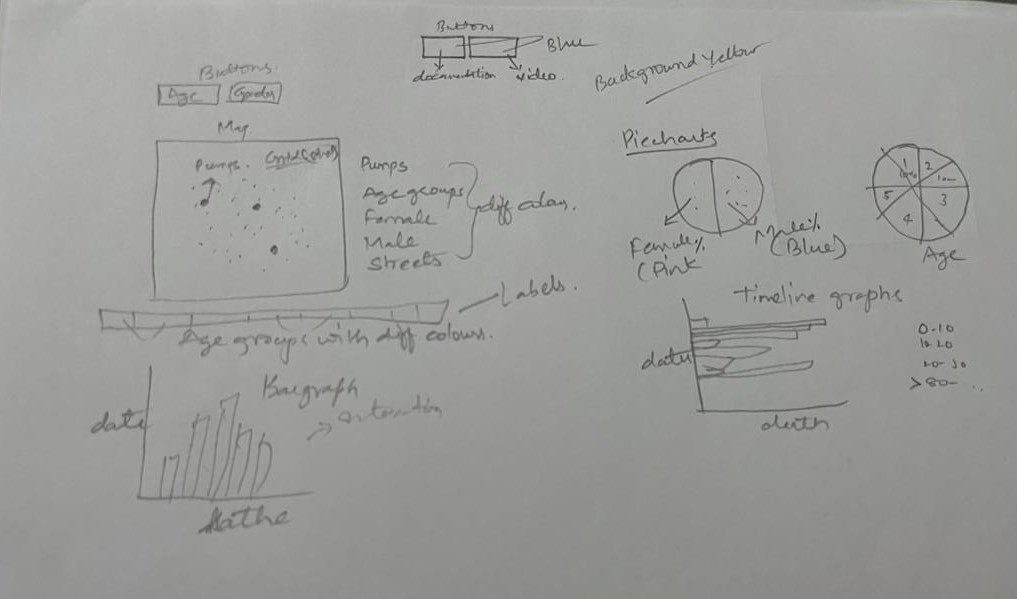 Buttons
Blue
documentation video.
Background Yellow
Buttons.
Age Gender
Map
Pumps.
Pumps
Age groups
Female
Male
Streets
diff colours.
Labels.
Age groups with diff colours.
Bargraph
date
Piecharts
Female%
(Pink
Male%
(Blue)
1 2
3
4
5
Age
Timeline graphs
date
death
0-10
>80- ..